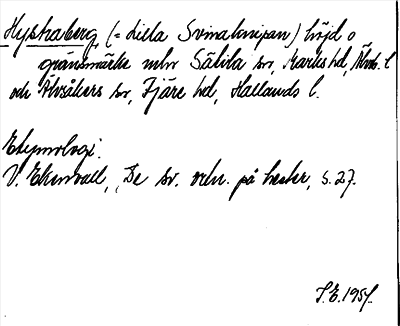 Hyskaberg, (= Lilla Svinaknipan) höjd o
gränsmärke mln Sätila sn, Marks hd, Älvsb. l
och Älvsåkers sn, Fjäre hd, Hallands l.
Etymologi.
V. Ekenvall, De sv. ortn. på hester, s. 27.
S.E. 1957.